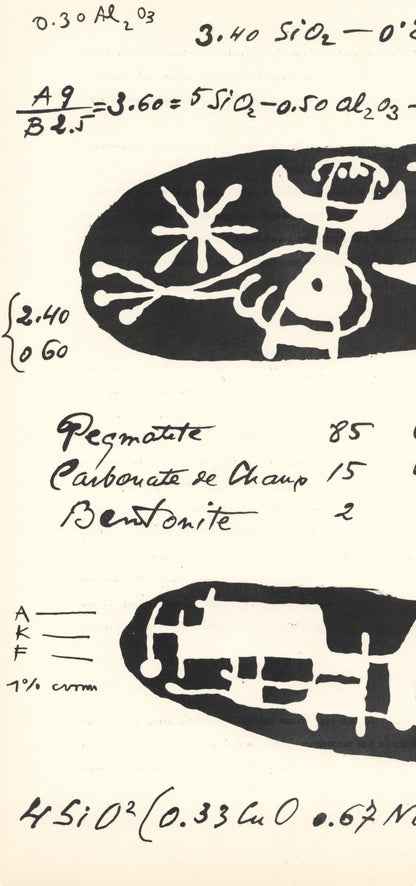 0.30 Al₂O₃
3.40 SiO₂ — 0'2
A 9
B 2.5
= 3.60 = 5 SiO₂ – 0.50 Al₂O₃
{ 2.40
0 60
Pegmatite 85
Carbonate de Chaux 15
Bentonite 2
A
K
F
1%
4 SiO² (0.33 CuO 0.67 Na